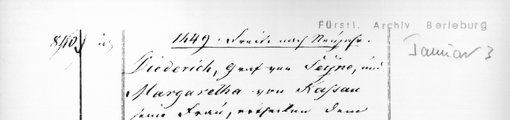 Fürstl. Archiv Berleburg
1449. Freita nach Neujahr.
Januar 3
Diederich, Graf von Seyne, und
Margaretha von Nassau
seine Frau, verkaufen dem